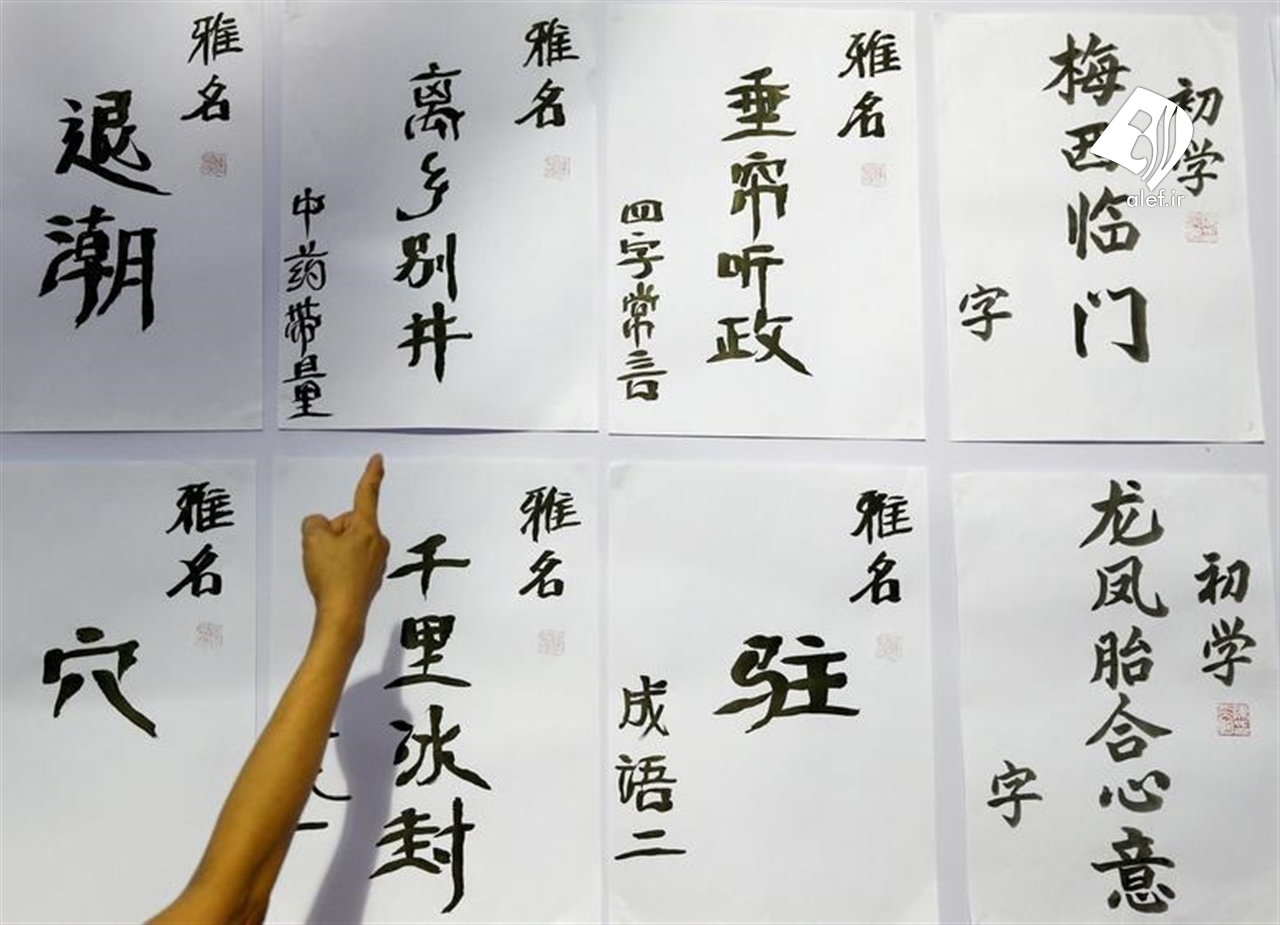 雅名
退潮
雅名
离乡别井
中药带量
雅名
垂帘听政
四字常言
初学
梅西临门
字
alef.ir
雅名
穴
雅名
千里冰封
雅名
驻
成语二
初学
龙凤胎合心意
字